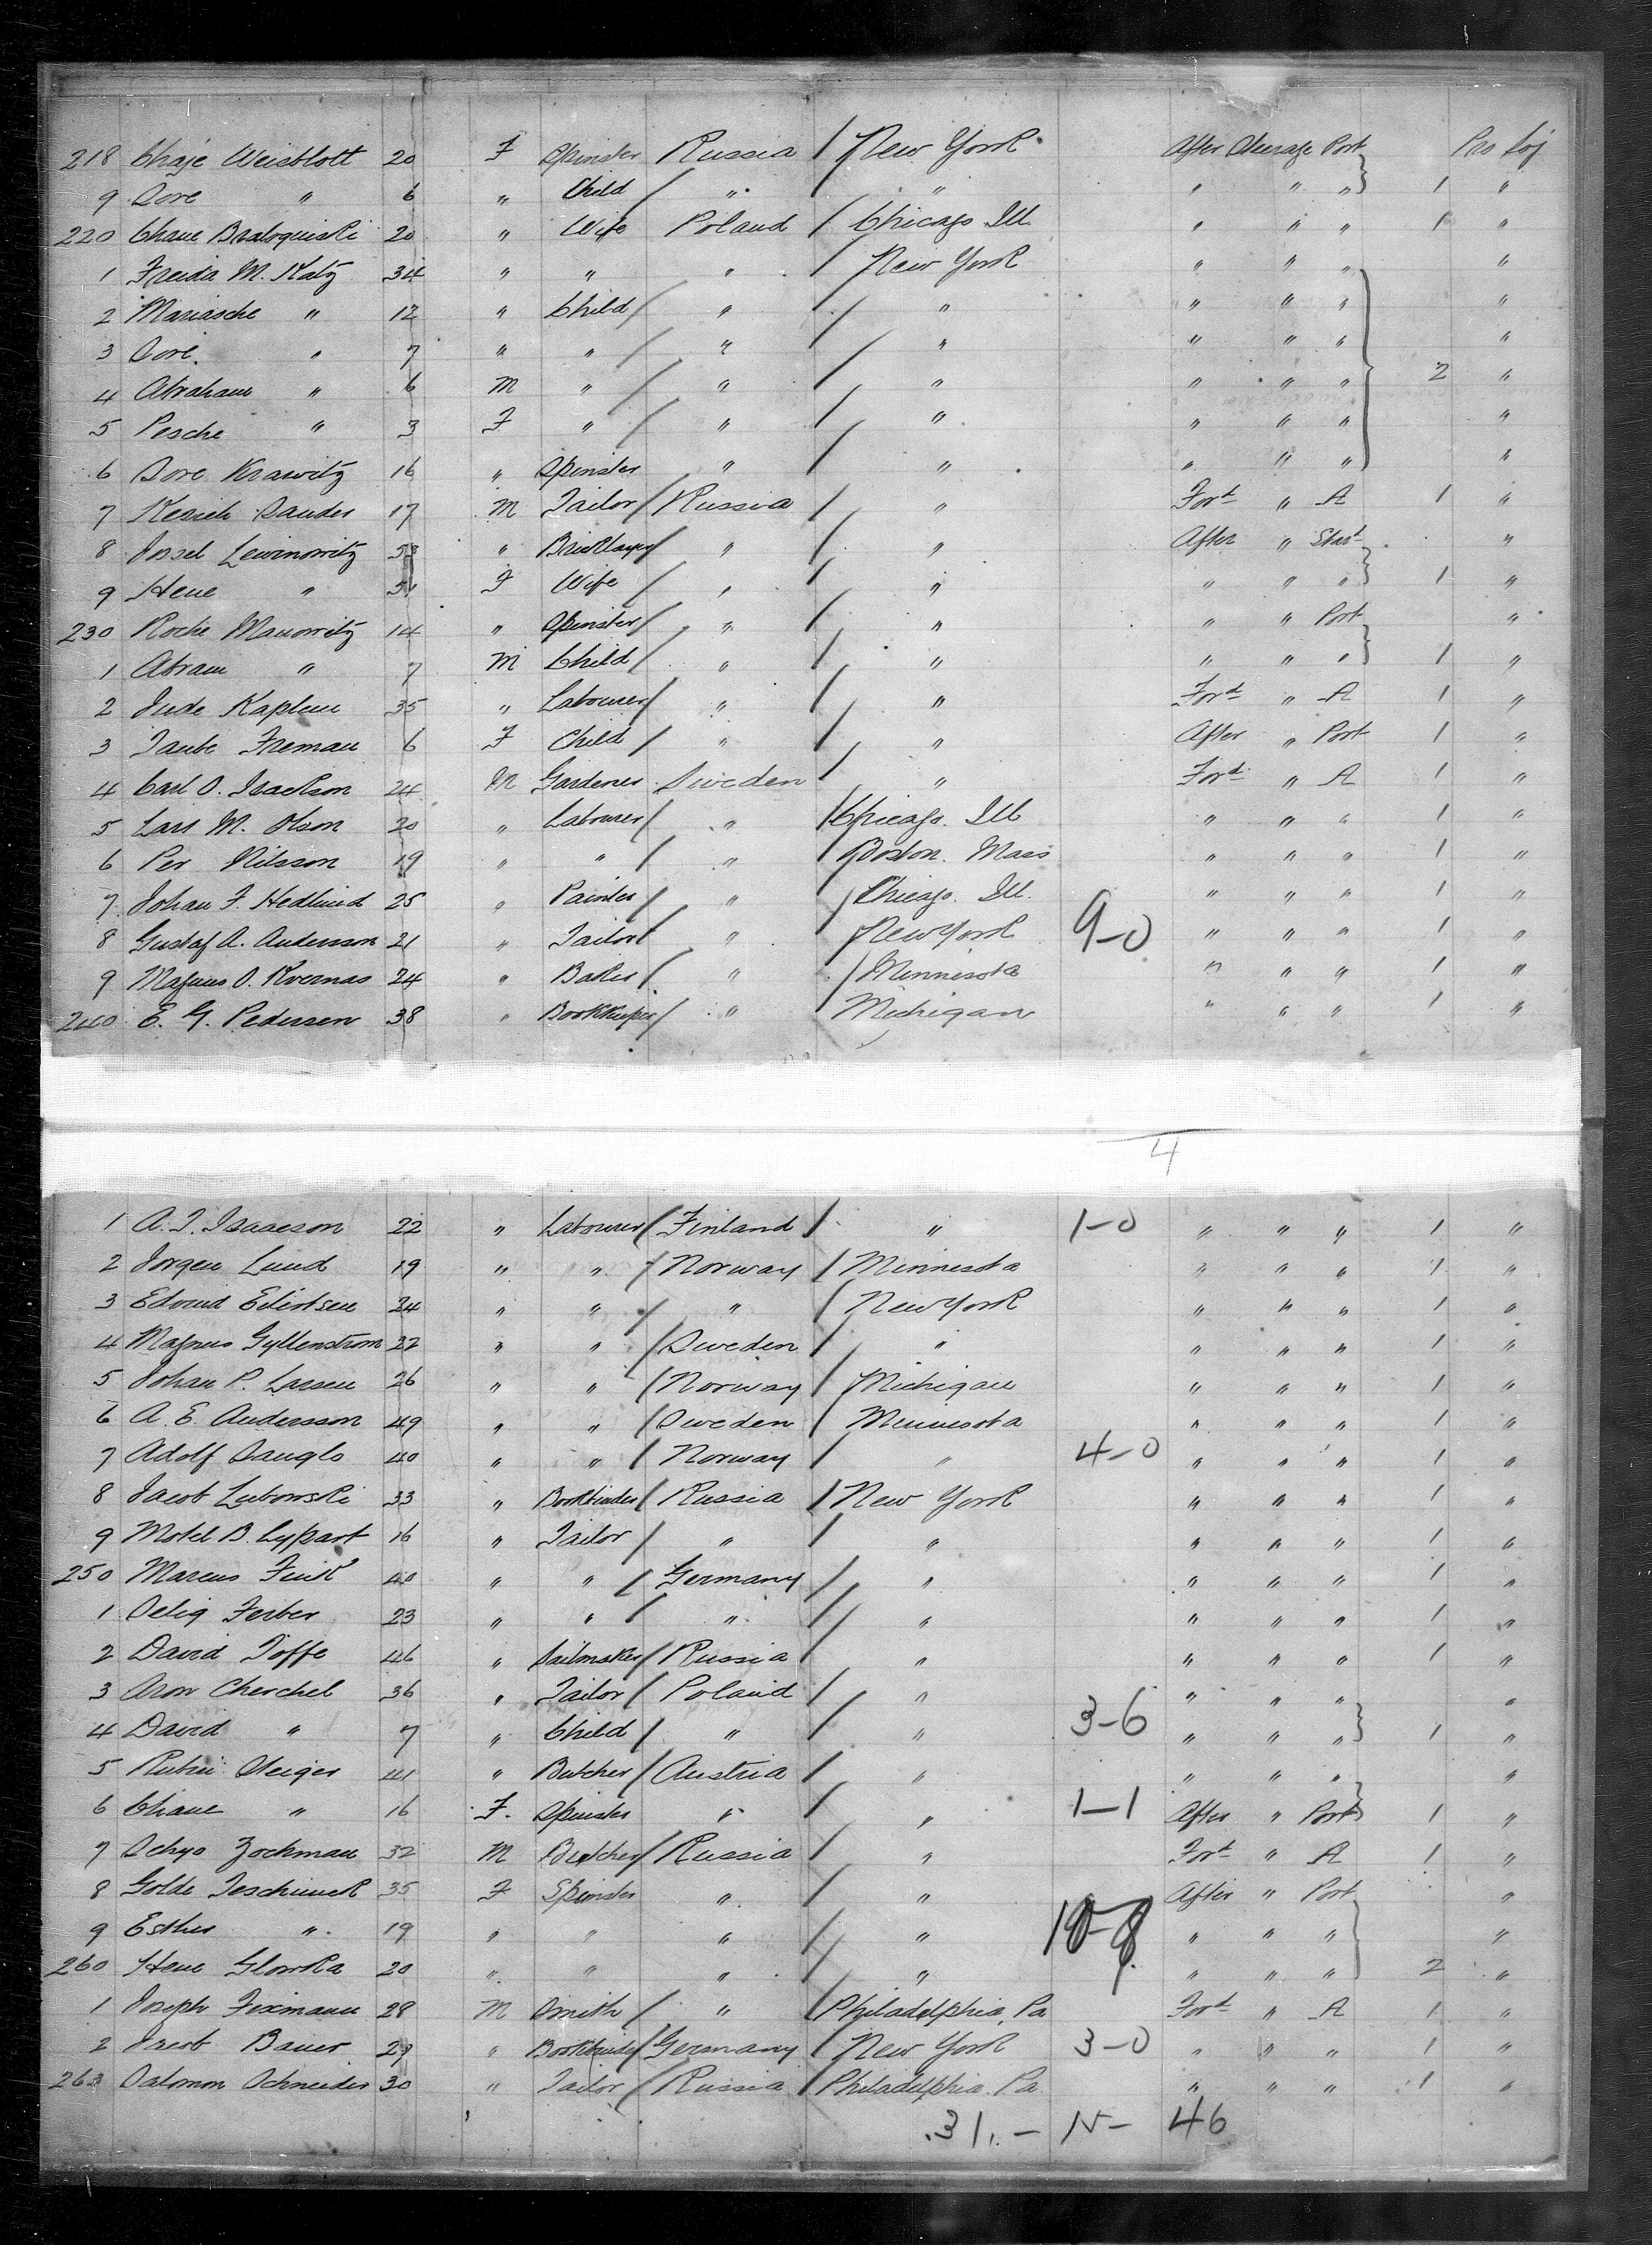 218 Chaje Weisblott 20 F Spinster Russia / New York After Steerage Port
9 Dore " 6 " Child / " " " " " } 1 "
220 Chane 20 " Wife Poland / Chicago Ill " " " 1 "
1 Freida M. Katz 34 " " " / New York " " " "
2 Mariasche " 12 " Child / " / " " " " "
3 Dore " 7 " " / " / " " " " "
4 Abraham " 6 M " / " / " " " " 2 "
5 Pesche " 3 F " / " / " " " " "
6 Dore Krawitz 16 " Spinster " / " " " " "
7 Sander 17 M Tailor / Russia / " Ford " A 1 "
8 Jossel Lewinowitz 53 " Bricklayer / " / " After " Star "
9 Hene " 51 F Wife / " / " " " " } 1 "
230 Roche Manowitz 14 " Spinster / " / " " " Port "
1 Abram " 7 M Child / " / " " " " } 1 "
2 Jude Kaplene 35 " Labourer / " / " Ford " A 1 "
3 Taube Freman 6 F Child / " / " After " Port 1 "
4 Carl O. Isackson 24 M Gardener Sweden / " Ford " A 1 "
5 Lars M. Olson 20 " Labourer / " / Chicago. Ill " " " 1 "
6 Per Nilsson 19 " " / " / Boston. Mass " " " 1 "
7 Johan F. Hedlund 25 " Painter / " / Chicago. Ill. " " " 1 "
8 Gustaf A. Andersson 21 " Tailor / " / New York 9-0 " " " 1 "
9 Magnus O. Kvernas 24 " Baker / " / Minnesota " " " 1 "
240 E. G. Pedersen 38 " Bookkeeper / " Michigan " " " 1 "
4
1 A. J. Isaacson 22 " Labourer / Finland / " 1-0 " " " 1 "
2 Jorgen Lund 19 " " / Norway / Minnesota " " " 1 "
3 Edvind Eilertsen 24 " " / " / New York " " " 1 "
4 Magnus Gyllenstrom 32 " " / Sweden / " " " " 1 "
5 Johan P. Larsen 26 " " / Norway / Michigan " " " 1 "
6 A. E. Andersson 49 " " / Sweden / Minnesota " " " 1 "
7 Adolf Sauglo 40 " " / Norway / " 4-0 " " " 1 "
8 Jacob Lubowski 33 " Bookbinder / Russia / New York " " " 1 "
9 Motel B. Cypart 16 " Tailor / " / " " " " 1 "
250 Marcus Fink 40 " " / Germany / " " " " 1 "
1 Selig Ferber 23 " " / " / " " " " 1 "
2 David Joffe 46 " Sailmaker / Russia / " " " " 1 "
3 Aron Cherchel 36 " Tailor / Poland / " " " " "
4 David " 7 " Child / " / " 3-6 " " " } 1 "
5 Rubin Steiger 41 " Butcher / Austria / " " " " "
6 Chane " 16 F. Spinster " / " 1-1 After " Port } 1 "
7 Schyo Zockman 32 M Butcher / Russia / " Ford " A 1 "
8 Golde 35 F Spinster " / " After " Port "
9 Esther " 19 " " " / " 10-8 " " " "
260 Hene Glowka 20 " " " / " " " " 2 "
1 Joseph Fixmann 28 M Smith / " / Philadelphia, Pa Ford " A 1 "
2 Jacob Bauer 29 " Bookbinder / Germany / New York 3-0 " " " 1 "
263 Salomon Schneider 30 " Tailor / Russia / Philadelphia. Pa. " " " 1 "
31. - 15 - 46